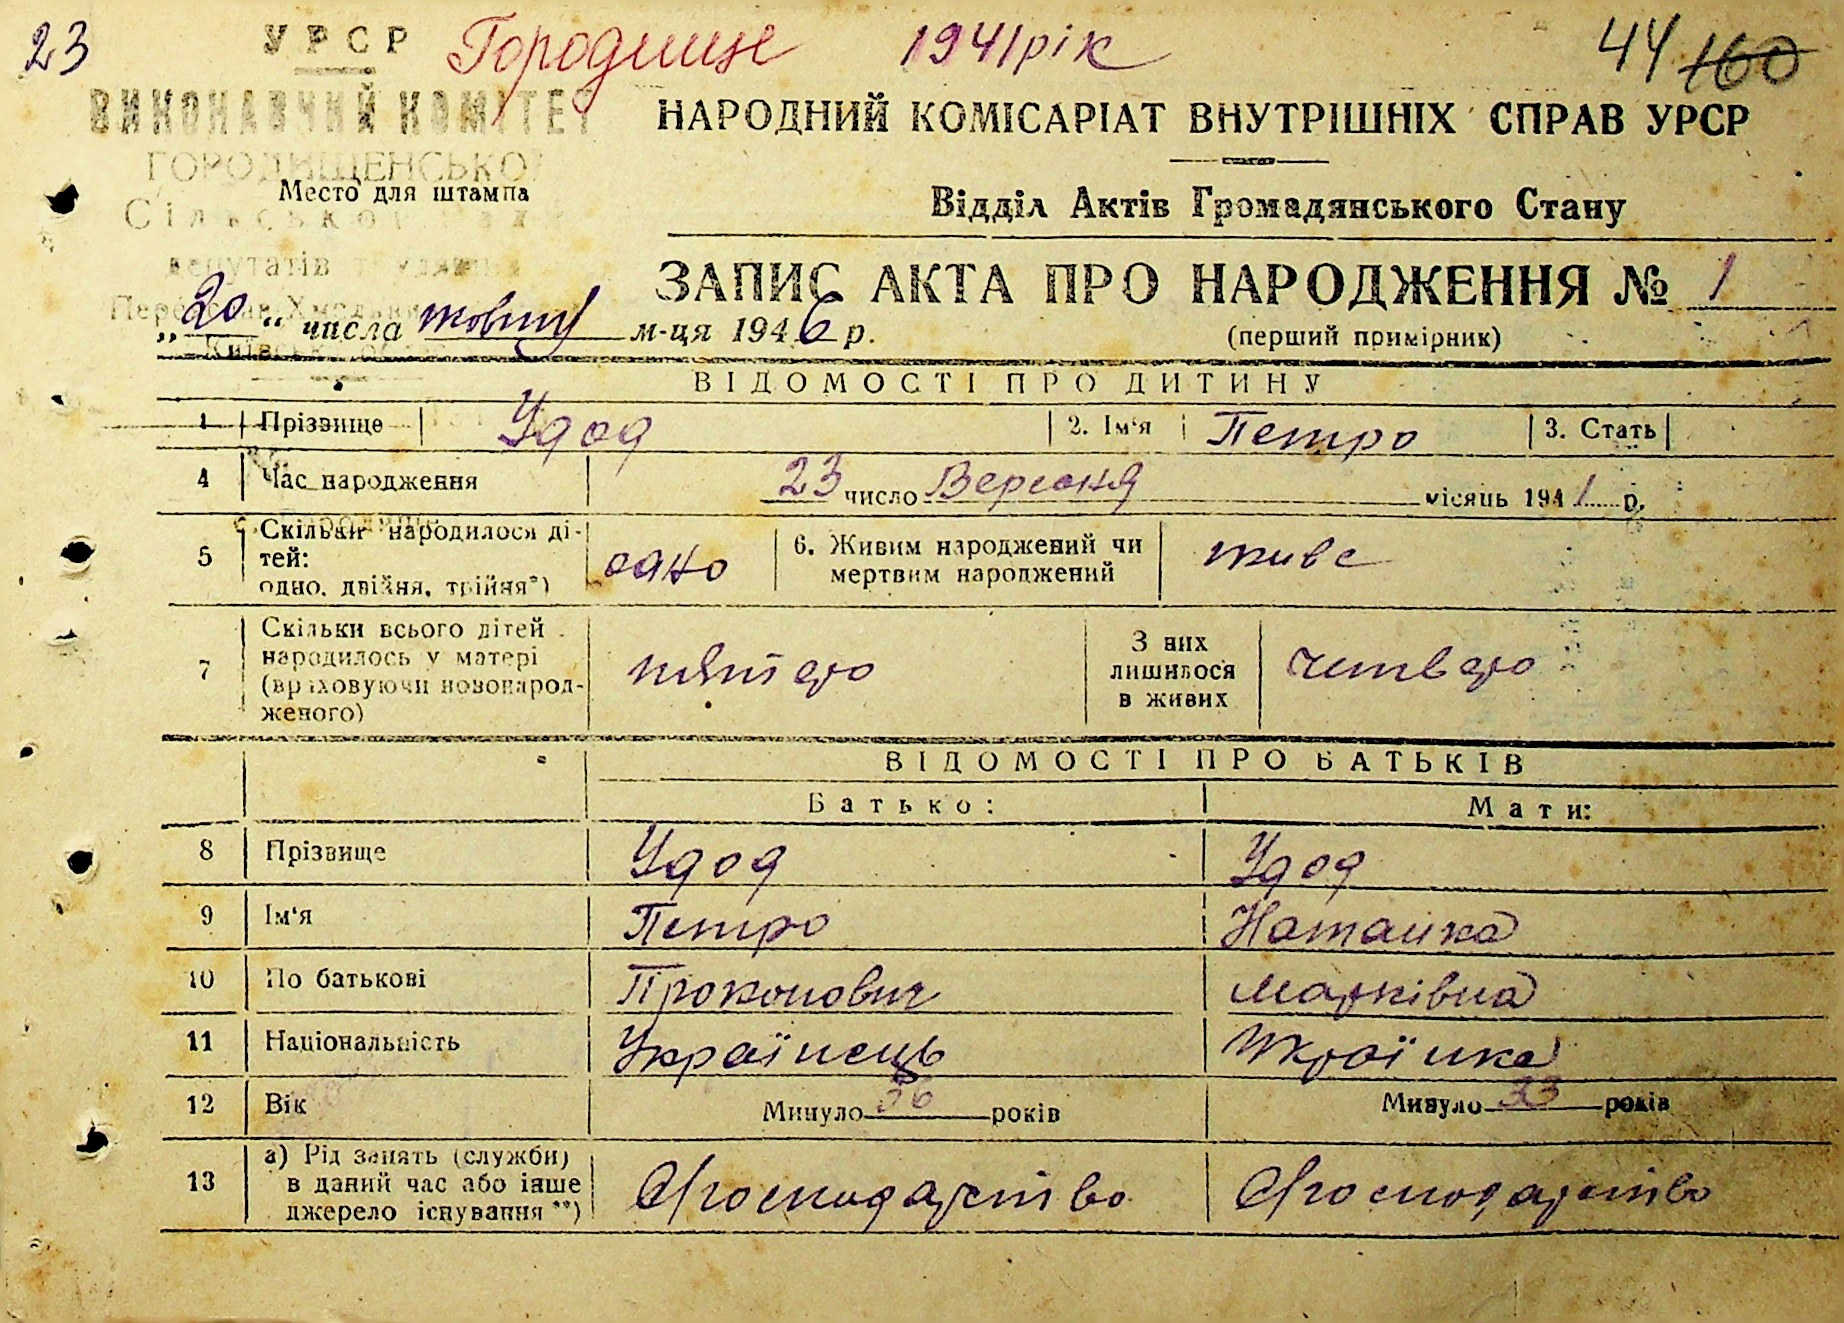 23 УРСР Городище 1941 рік 44 160
ВИКОНАВЧИЙ КОМІТЕТ
НАРОДНИЙ КОМІСАРІАТ ВНУТРІШНІХ СПРАВ УРСР
ГОРОДИЩЕНСЬКОЇ
Место для штампа
Сільської
Відділ Актів Громадянського Стану
депутатів
ЗАПИС АКТА ПРО НАРОДЖЕННЯ № 1
„20“ числа жовтня м-ця 1946 р.
(перший примірник)
ВІДОМОСТІ ПРО ДИТИНУ
1 Прізвище Удод 2. Ім'я Петро 3. Стать
4 Час народження 23 число Вересня місяць 1941 р.
5 Скільки народилося ді-
тей:
одно, двійня, трійня*)
одно
6. Живим народжений чи
мертвим народжений
живе
7 Скільки всього дітей
народилось у матері
(враховуючи новонарод-
женого)
пятеро
З них
лишилося
в живих
четверо
ВІДОМОСТІ ПРО БАТЬКІВ
Батько: Мати:
8 Прізвище Удод Удод
9 Ім'я Петро Наталка
10 По батькові Прокопович Марківна
11 Національність Українець Українка
12 Вік Минуло 36 років Минуло 33 років
13 а) Рід занять (служби)
в даний час або інше
джерело існування**)
Господарство Господарство